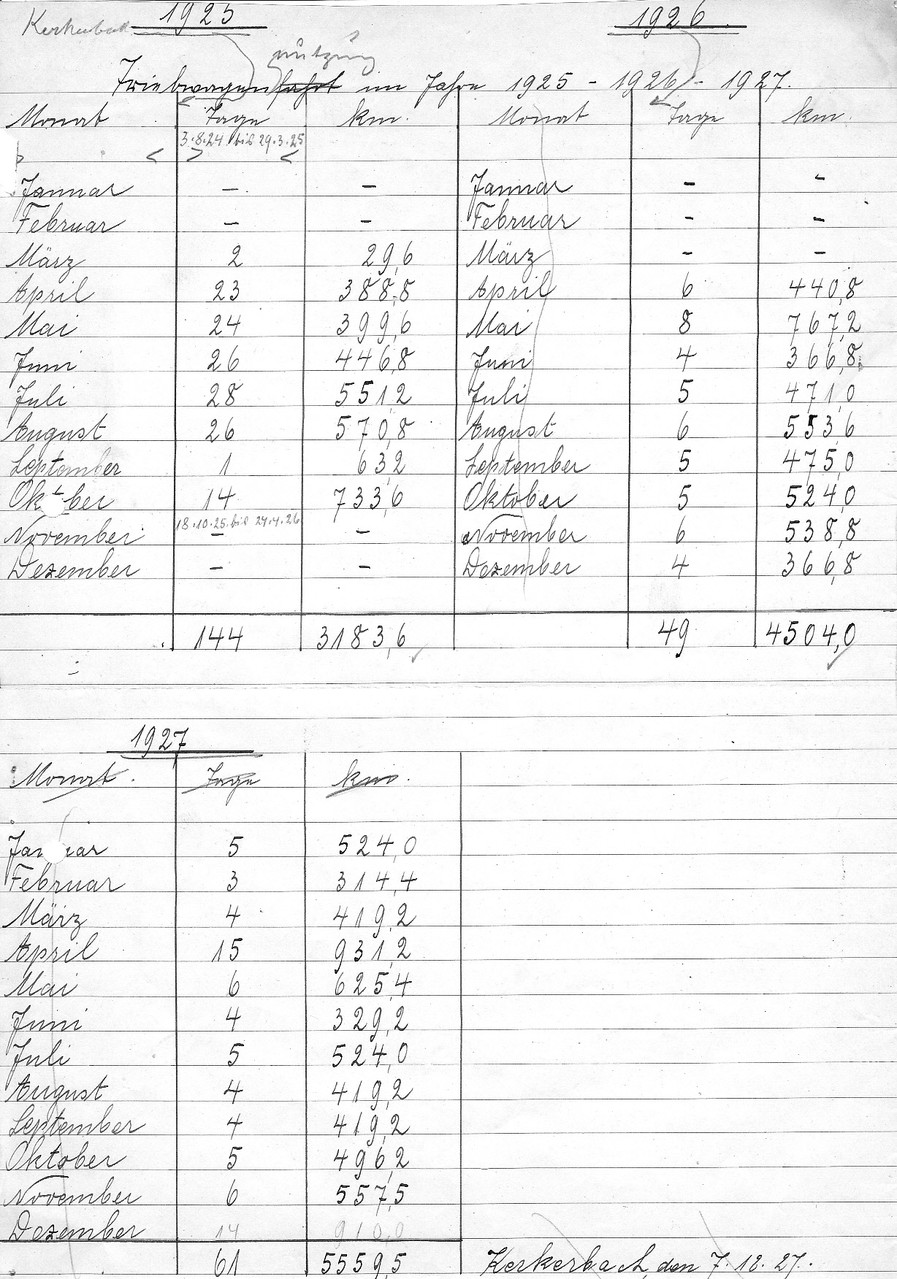 Kerkerbach 1925 1926
nützung
Triebwagenfahrt im Jahre 1925 - 1926 - 1927.
Monat Tage km. Monat Tage km.
3.8.24 bis 29.3.25
Januar – – Januar – –
Februar – – Februar – –
März 2 29,6 März – –
April 23 388,8 April 6 440,8
Mai 24 399,6 Mai 8 767,2
Juni 26 446,8 Juni 4 366,8
Juli 28 551,2 Juli 5 471,0
August 26 570,8 August 6 553,6
September 1 63,2 September 5 475,0
Oktober 14 733,6 Oktober 5 524,0
18.10.25. bis 24.4.26
November – – November 6 538,8
Dezember – – Dezember 4 366,8
144 3183,6 49 4504,0
1927
Monat. Tage km.
Januar 5 524,0
Februar 3 314,4
März 4 419,2
April 15 931,2
Mai 6 625,4
Juni 4 329,2
Juli 5 524,0
August 4 419,2
September 4 419,2
Oktober 5 496,2
November 6 557,5
Dezember 14 910,0
61 5559,5 Kerkerbach, den 7.12.27.